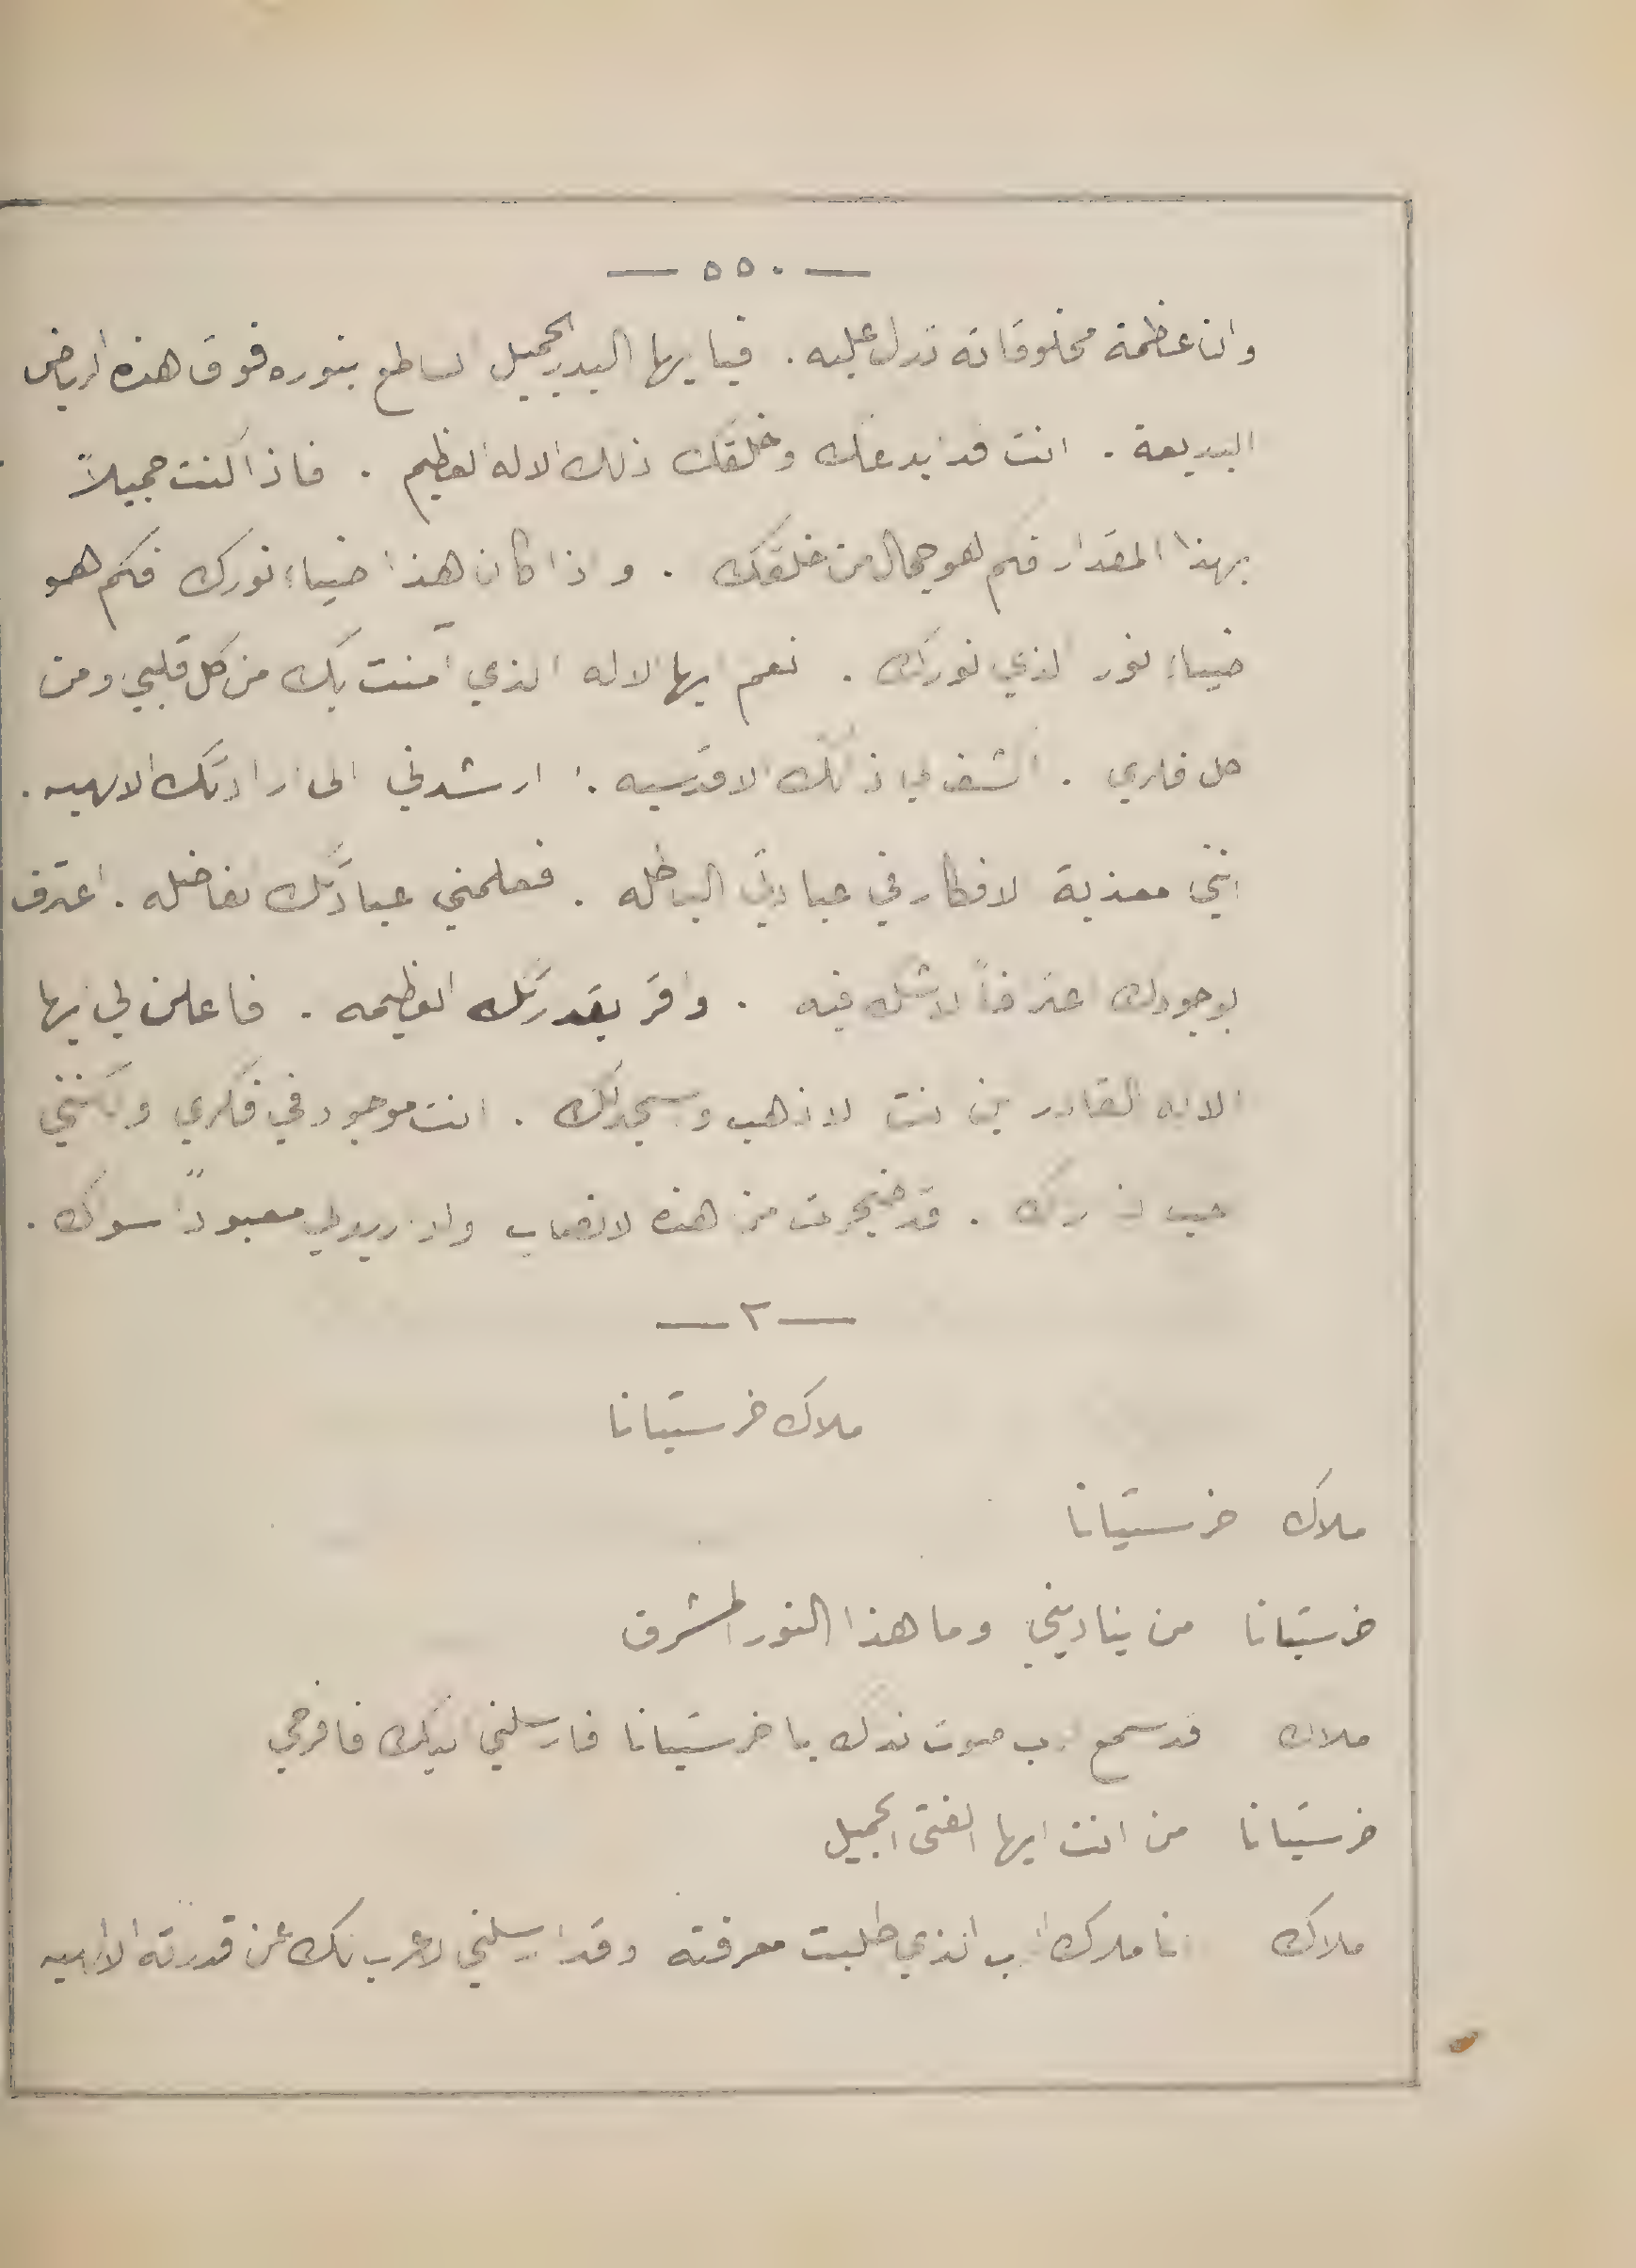 — ٥٥٠ —
وان عظمة مخلوقاته تدل عليه . فيا ايها البدر الجميل الساطع بنوره فوق هذه الرياض
البديعة . انت قد ابدعك وخلقك ذلك الاله العظيم . فاذا كنت جميلاً
بهذا المقدار فكم هو جمال من خلقك . واذا كان هذا ضياء نورك فكم هو
ضياء نور الذي نورك . نعم ايها الاله الذي آمنت بك من كل قلبي ومن
كل فكري . اكشف لي ذاتك الاقدسيه . ارشدني الى ارادتك الالهيه .
انني معذبة الافكار في عبادتي الباطله . فعلمني عبادتك الفاضله . اعترف
بوجودك اعترافاً لا شك فيه . واقر بقدرتك العظيمه . فاعلن لي ايها
الاله القادر اين انت لاذهب واسجد لك . انت موجود في فكري ولكنني
احب ان اراك . قد ضجرت من هذه الانصاب ولا اريد لي معبوداً سواك .
— ٢ —
ملاك خرستيانا
ملاك خرستيانا
خرستيانا من يناديني وما هذا النور المشرق
ملاك قد سمع الرب صوت نداك يا خرستيانا فارسلني اليك فافرحي
خرستيانا من انت ايها الفتى الجميل
ملاك انا ملاك الرب الذي طلبت معرفته وقد ارسلني لاعرب لك عن قدرته الالهيه